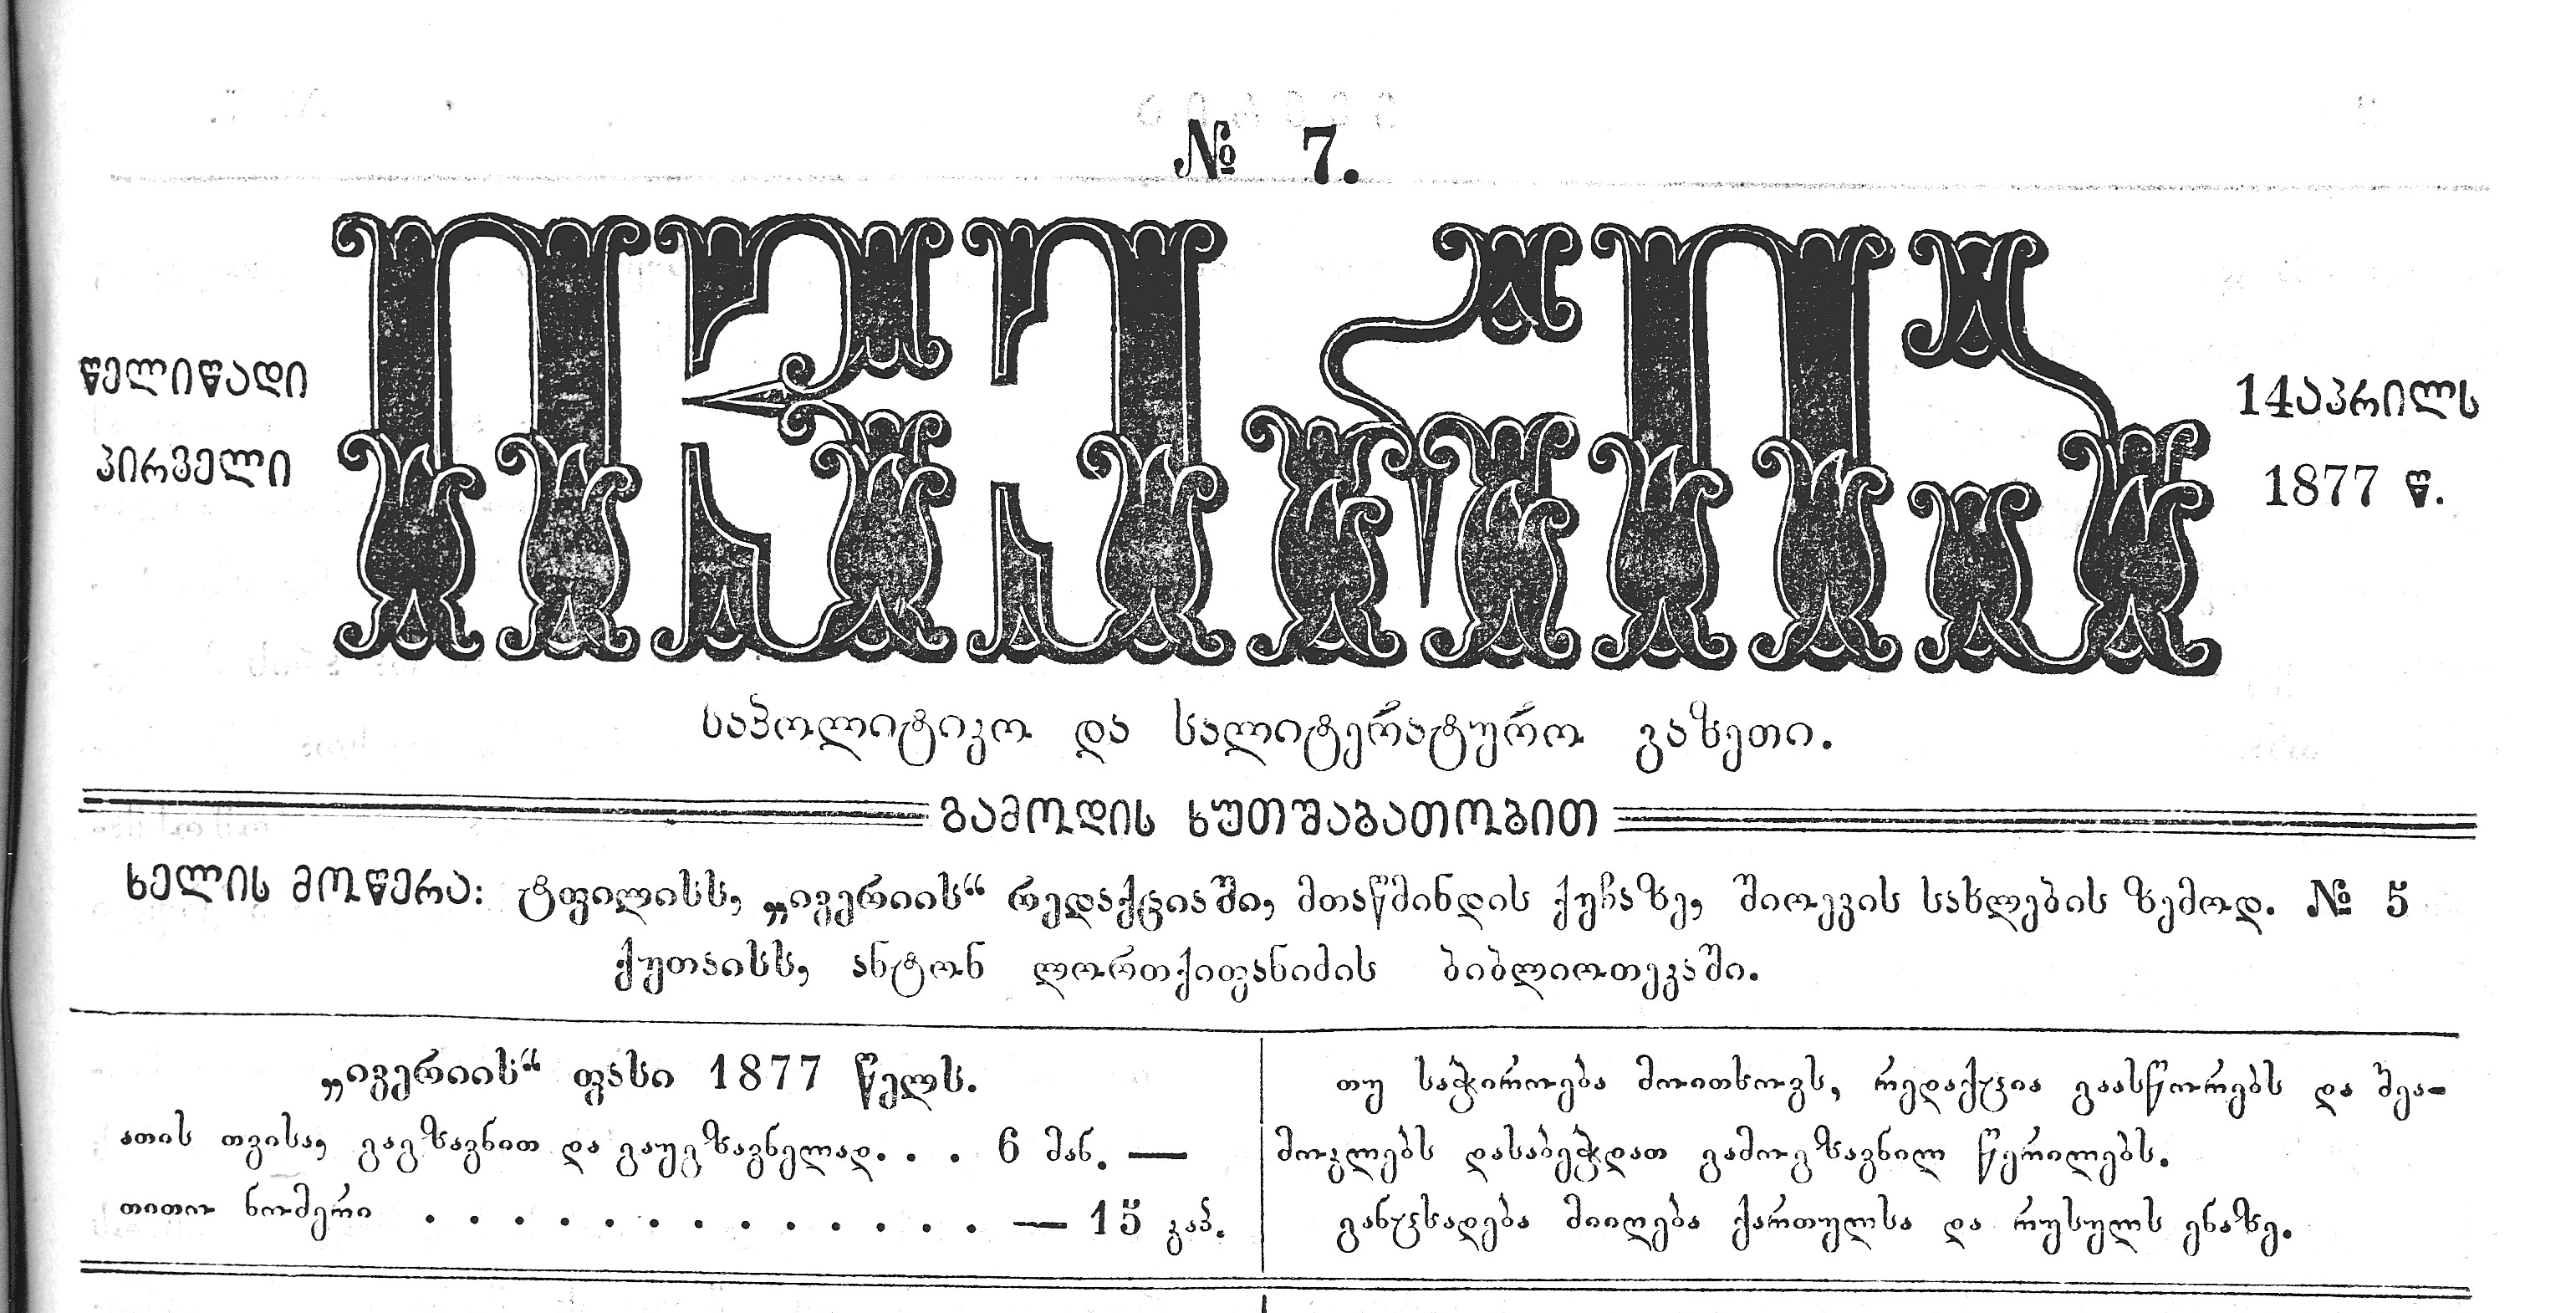 № 7.
წელიწადი
პირველი
ივერია
14 აპრილს
1877 წ.
საპოლიტიკო და სალიტერატურო გაზეთი.
გამოდის ხუთშაბათობით
ხელის მოწერა: ტფილისს, „ივერიის“ რედაქციაში, მთაწმინდის ქუჩაზე, შიოევის სახლების ზემოდ. № 5
ქუთაისს, ანტონ ლორთქიფანიძის ბიბლიოთეკაში.
„ივერიის“ ფასი 1877 წელს.
ათის თვისა, გაგზავნით და გაუგზავნელად. . . 6 მან. —
თითო ნომერი . . . . . . . . . . . . . — 15 კაპ.
თუ საჭიროება მოითხოვს, რედაქცია გაასწორებს და შეა-
მოკლებს დასაბეჭდათ გამოგზავნილ წერილებს.
განცხადება მიიღება ქართულსა და რუსულს ენაზე.